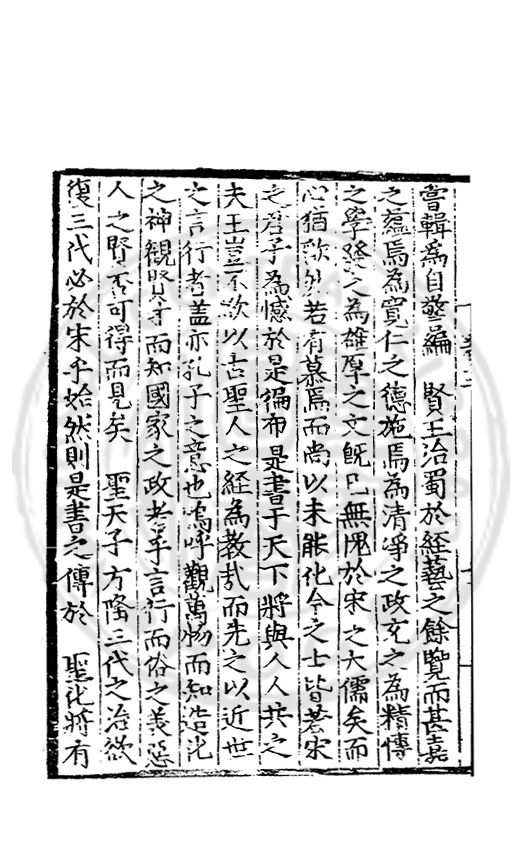 嘗輯為自警編　賢王治蜀於經藝之餘覽而甚嘉
之蘊焉為寬仁之德施焉為清凈之政充之為精傳
之學發之為雄厚之文旣已無愧於宋之大儒矣而
心猶欿然若有慕焉而尚以未能化今之士皆若宋
之君子為憾於是徧布是書于天下將與人人共之
夫王豈不欲以古聖人之經為教哉而先之以近世
之言行者盖亦孔子之意也嗚呼觀萬物而知造化
之神觀賢才而知國家之政考乎言行而俗之美惡
人之賢否可得而見矣　聖天子方隆三代之治欲
復三代必於宋乎始然則是書之傳於　聖化將有